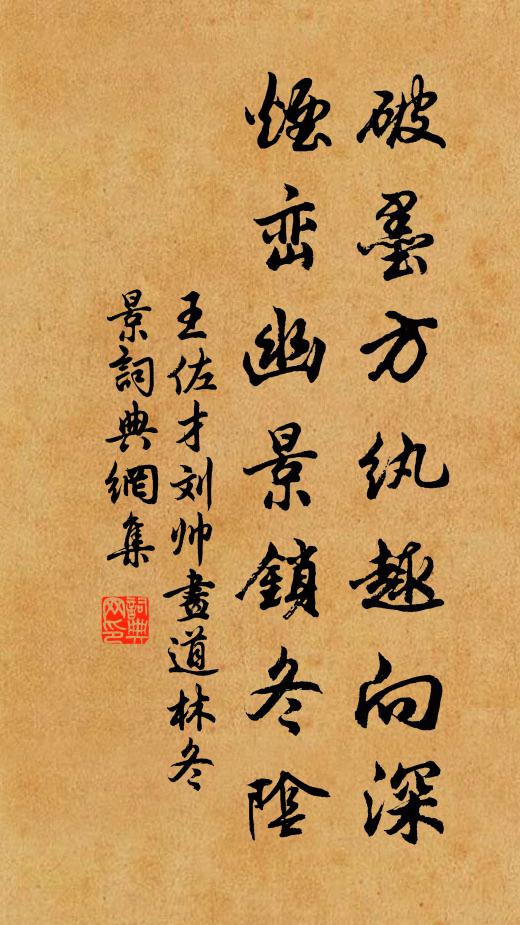 破墨方纨趣向深
煙峦幽景鎖冬陰
王佐才刘帅畫道林冬
景詞典網集
詞典
网印